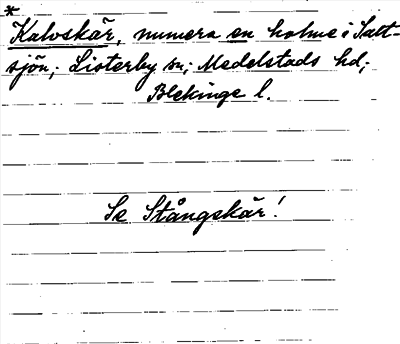 *
Kalvskär, numera en holme i Salt-
sjön; Listerby sn; Medelstads hd;
Blekinge l.
Se Stångskär!